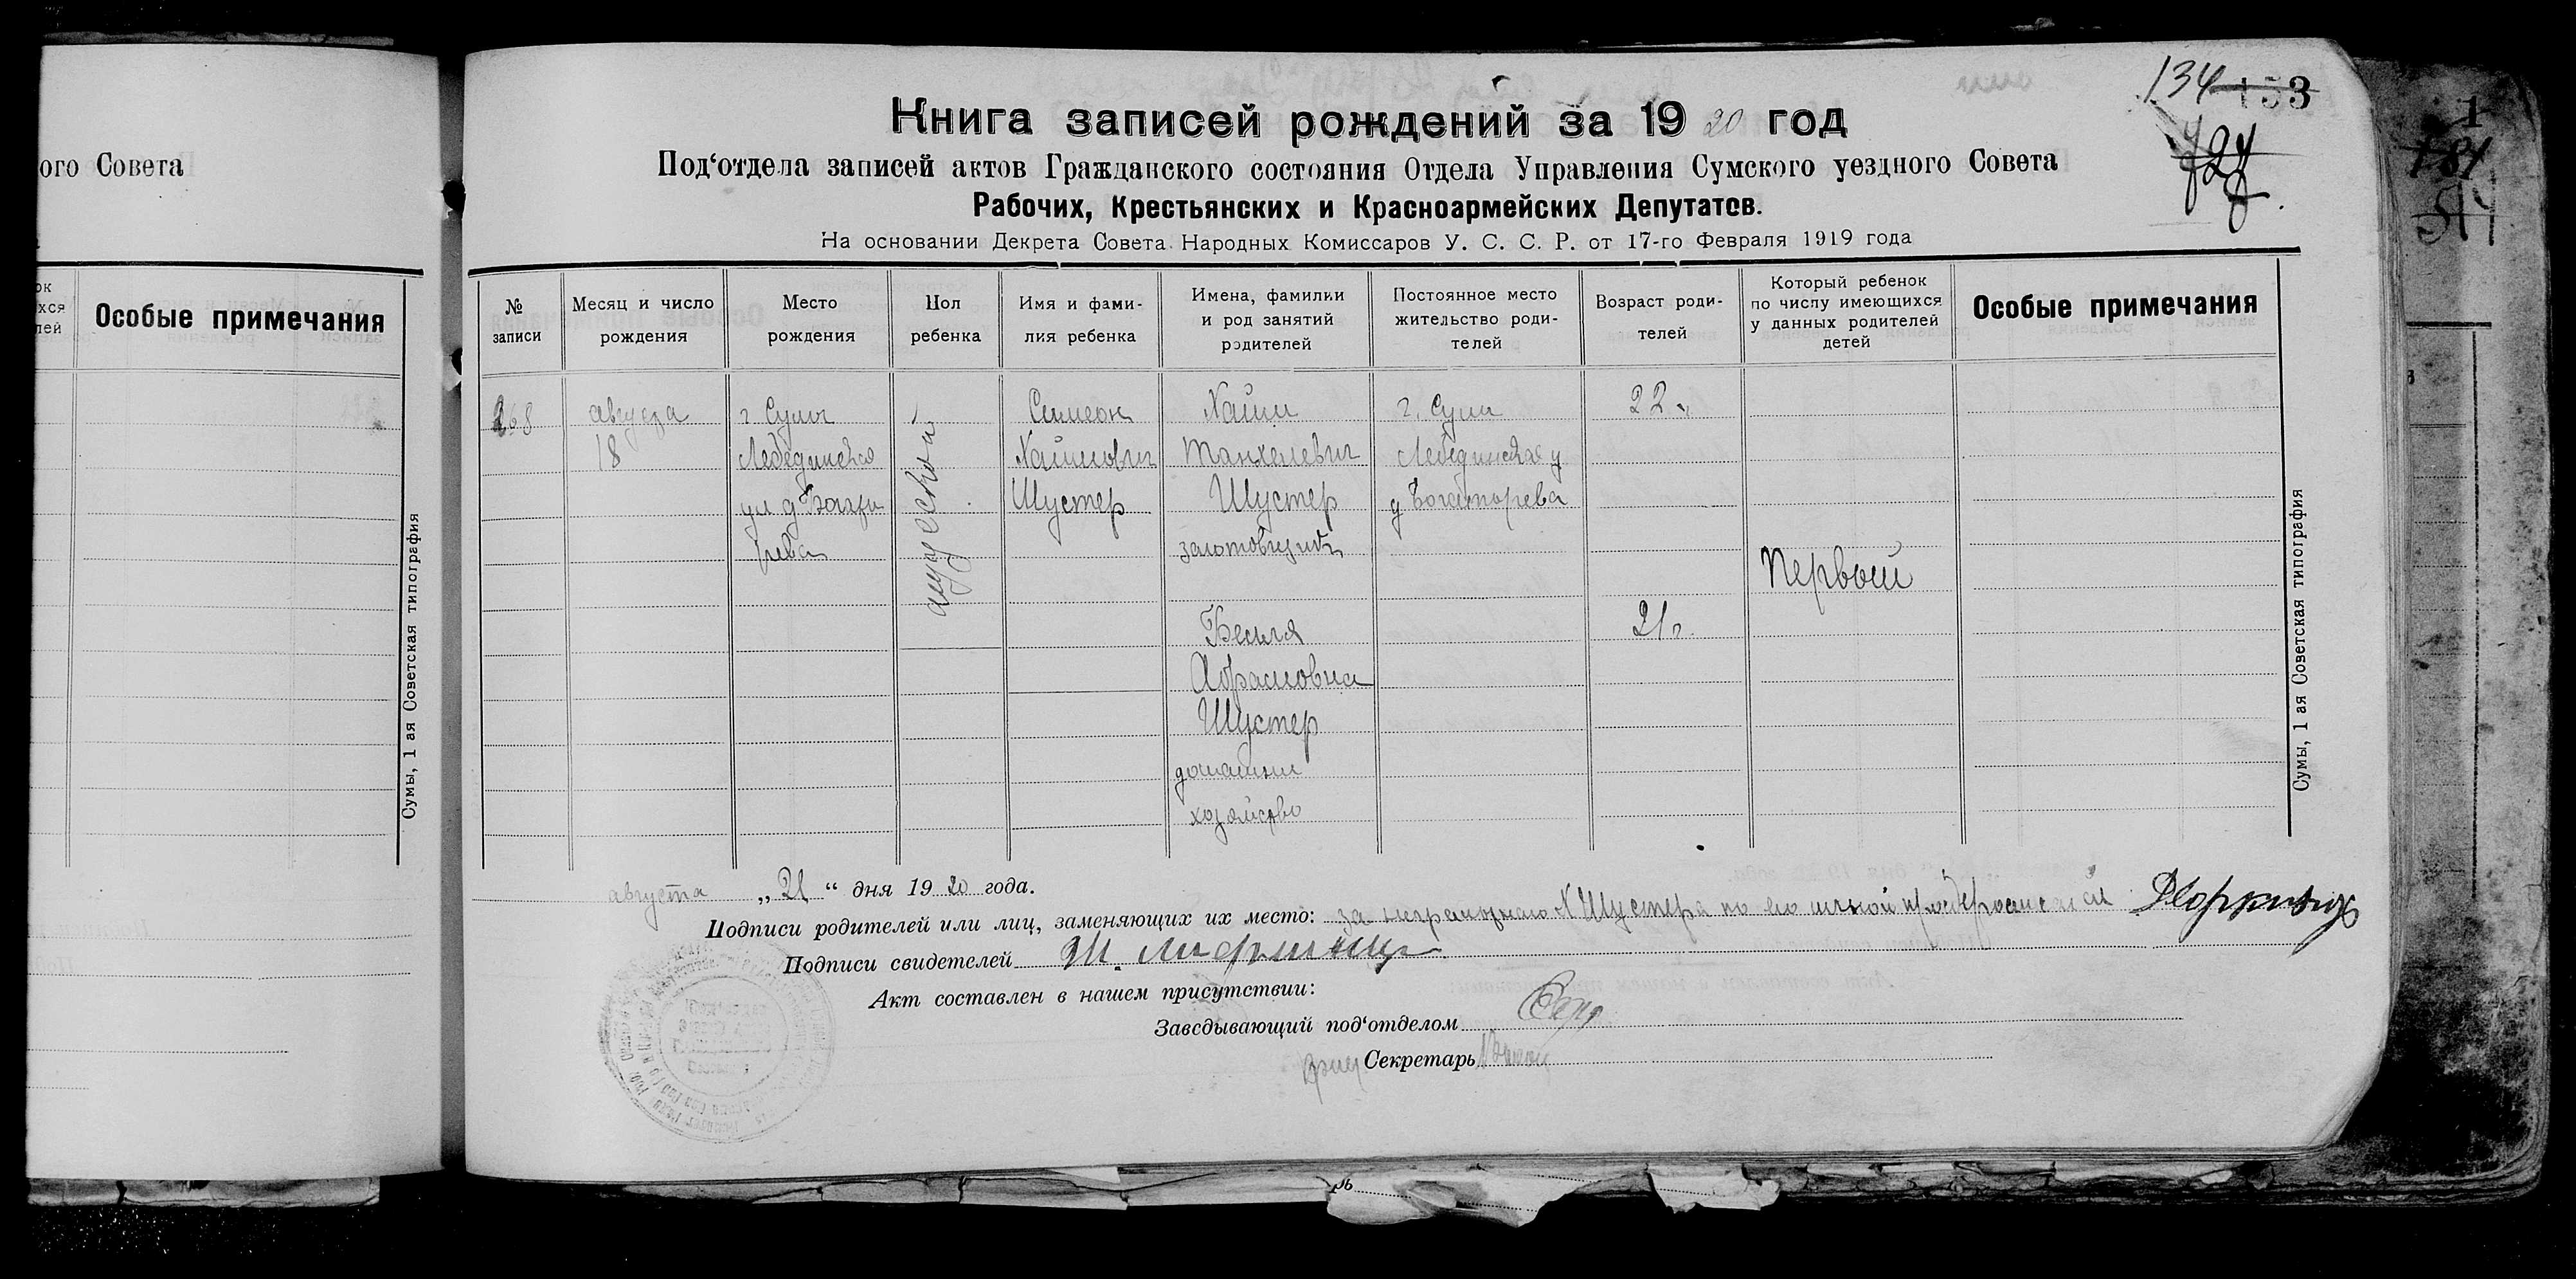 ого Совета
Особые примечания
Сумы, 1 ая Советская типография
134 153
Книга записей рождений за 1920 год
Под‘отдела записей актов Гражданского состояния Отдела Управления Сумского уездного Совета
Рабочих, Крестьянских и Красноармейских Депутатов.
На основании Декрета Совета Народных Комиссаров У. С. С. Р. от 17-го Февраля 1919 года
№ записи
Месяц и число рождения
Место рождения
Пол ребенка
Имя и фами-
лия ребенка
Имена, фамилии
и род занятий
родителей
Постоянное место
жительство роди-
телей
Возраст роди-
телей
Который ребенок
по числу имеющихся
у данных родителей
детей
Особые примечания
268
августа
18
г Сумы
Лебединская
ул д Богаты
рева
мужеской
Симеон
Хаимович
Шустер
Хаим
Танхелевич
Шустер
Бейля
Абрамовна
Шустер
домашнее
хозяйство
г. Сумы
Лебединская у
д Богатырева
22
21 г.
Первый
Сумы, 1 ая Советская типография
августа „21“ дня 1920 года.
Подписи родителей или лиц, заменяющих их место: за неграмотного Х Шустера по его личной просьбе расписался
Подписи свидетелей
Акт составлен в нашем присутствии:
Заведывающий под‘отделом
Секретарь